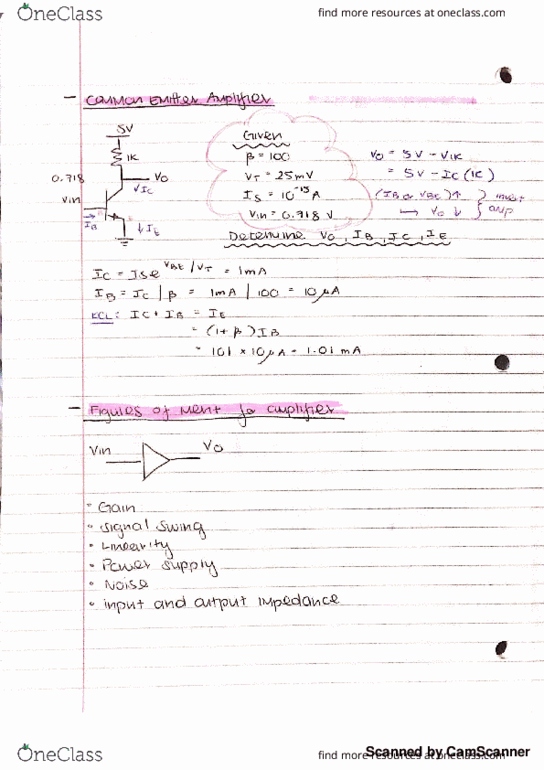 OneClass
find more resources at oneclass.com
- Common Emitter Amplifier
5V
1K
0.718
Vo
↓Ic
Vin
IB
↓IE
Given
β = 100
VT = 25mV
Is = 10^-15 A
Vin = 0.718 V
Vo = 5V - V1K
= 5V - Ic(1K)
(IB or VBE)↑
→ Vo ↓
amp
Determine Vo, IB, Ic, IE
Ic = Ise^VBE/VT = 1mA
IB = Ic | β = 1mA | 100 = 10μA
KCL: Ic + IB = IE
= (1+β)IB
= 101 × 10μA = 1.01 mA
- Figures of Merit for amplifier
Vin
Vo
• Gain
• Signal Swing
• Linearity
• Power Supply
• Noise
• input and output impedance
OneClass
find more resources at oneclass.com
Scanned by CamScanner